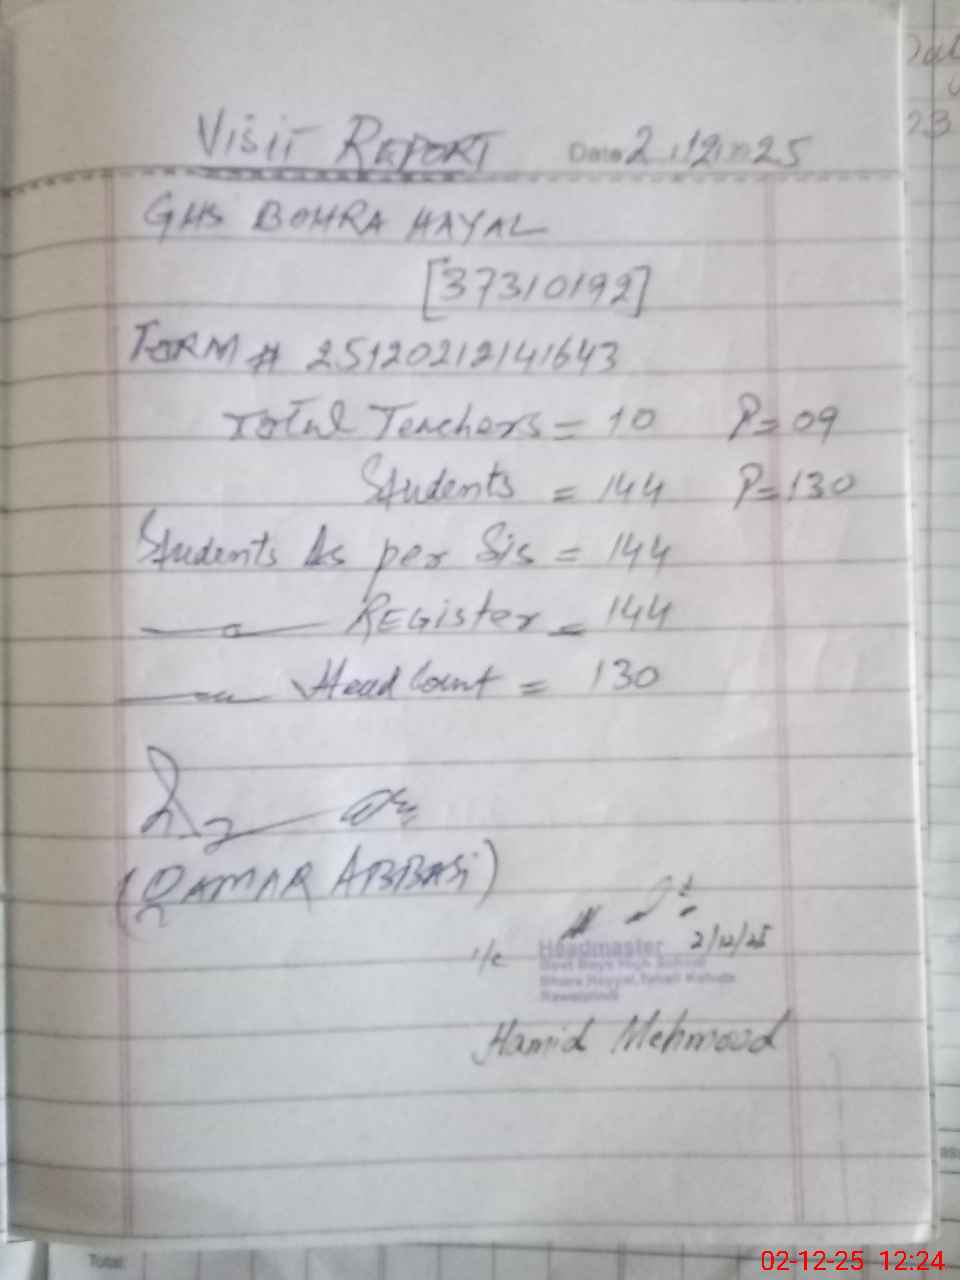 VISIT REPORT Date 2.12.2025
GHS BOHRA HAYAL
[37310192]
FORM # 25120212141643
Total Teachers = 10 P= 09
Students = 144 P= 130
Students As per Sis = 144
REGister = 144
Head Count = 130
(QAMAR ABBASi)
2/12/25
i/c Headmaster
Govt Boys High School
Rawalpindi
Hamid Mehmood
Total
02-12-25 12:24